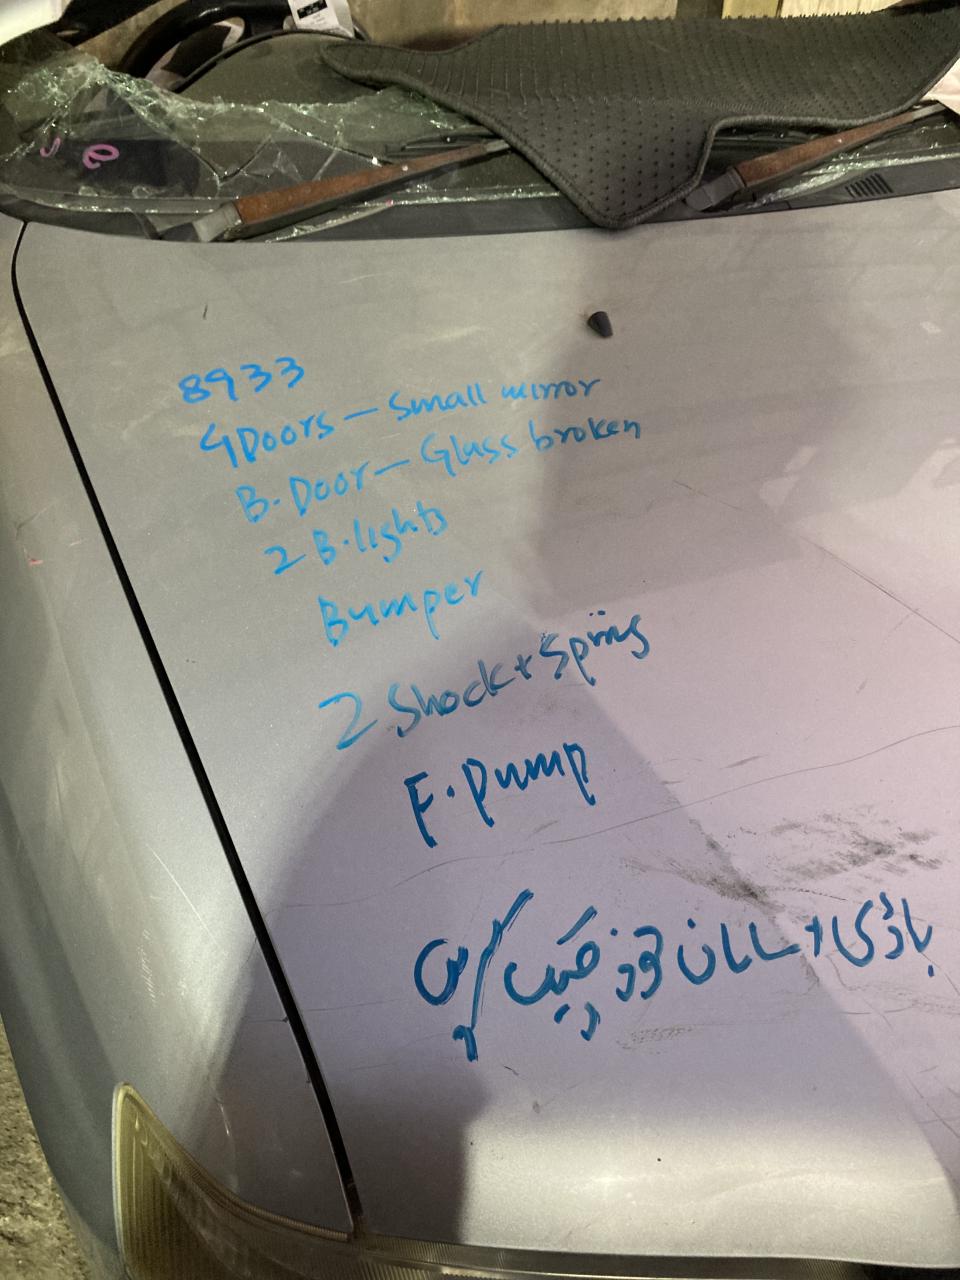 8933
4 Doors – Small mirror
B. Door – Glass broken
2 B. lights
Bumper
2 Shock + Spring
F. Pump
باڈی + سامان خود چیک کریں